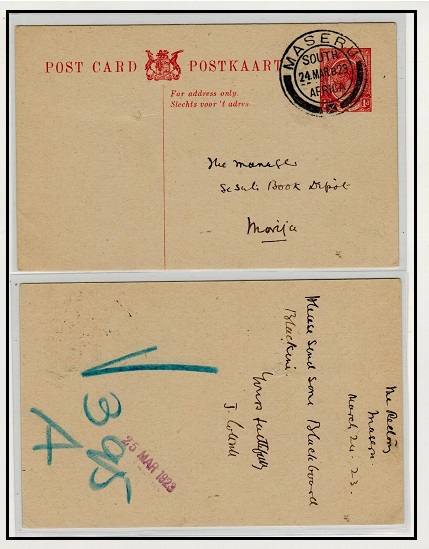 POST CARD POSTKAART
For address only.
Slechts voor 't adres.
MASERU
SOUTH
24.MAR.B23
AFRICA
1D
The Manager
Sesuto Book Depôt
Morija
The Rectory
Maseru.
March 24. 23.
Please send some Blackboard
Blacking.
Yours faithfully
J.
V 395
A
25 MAR 1923